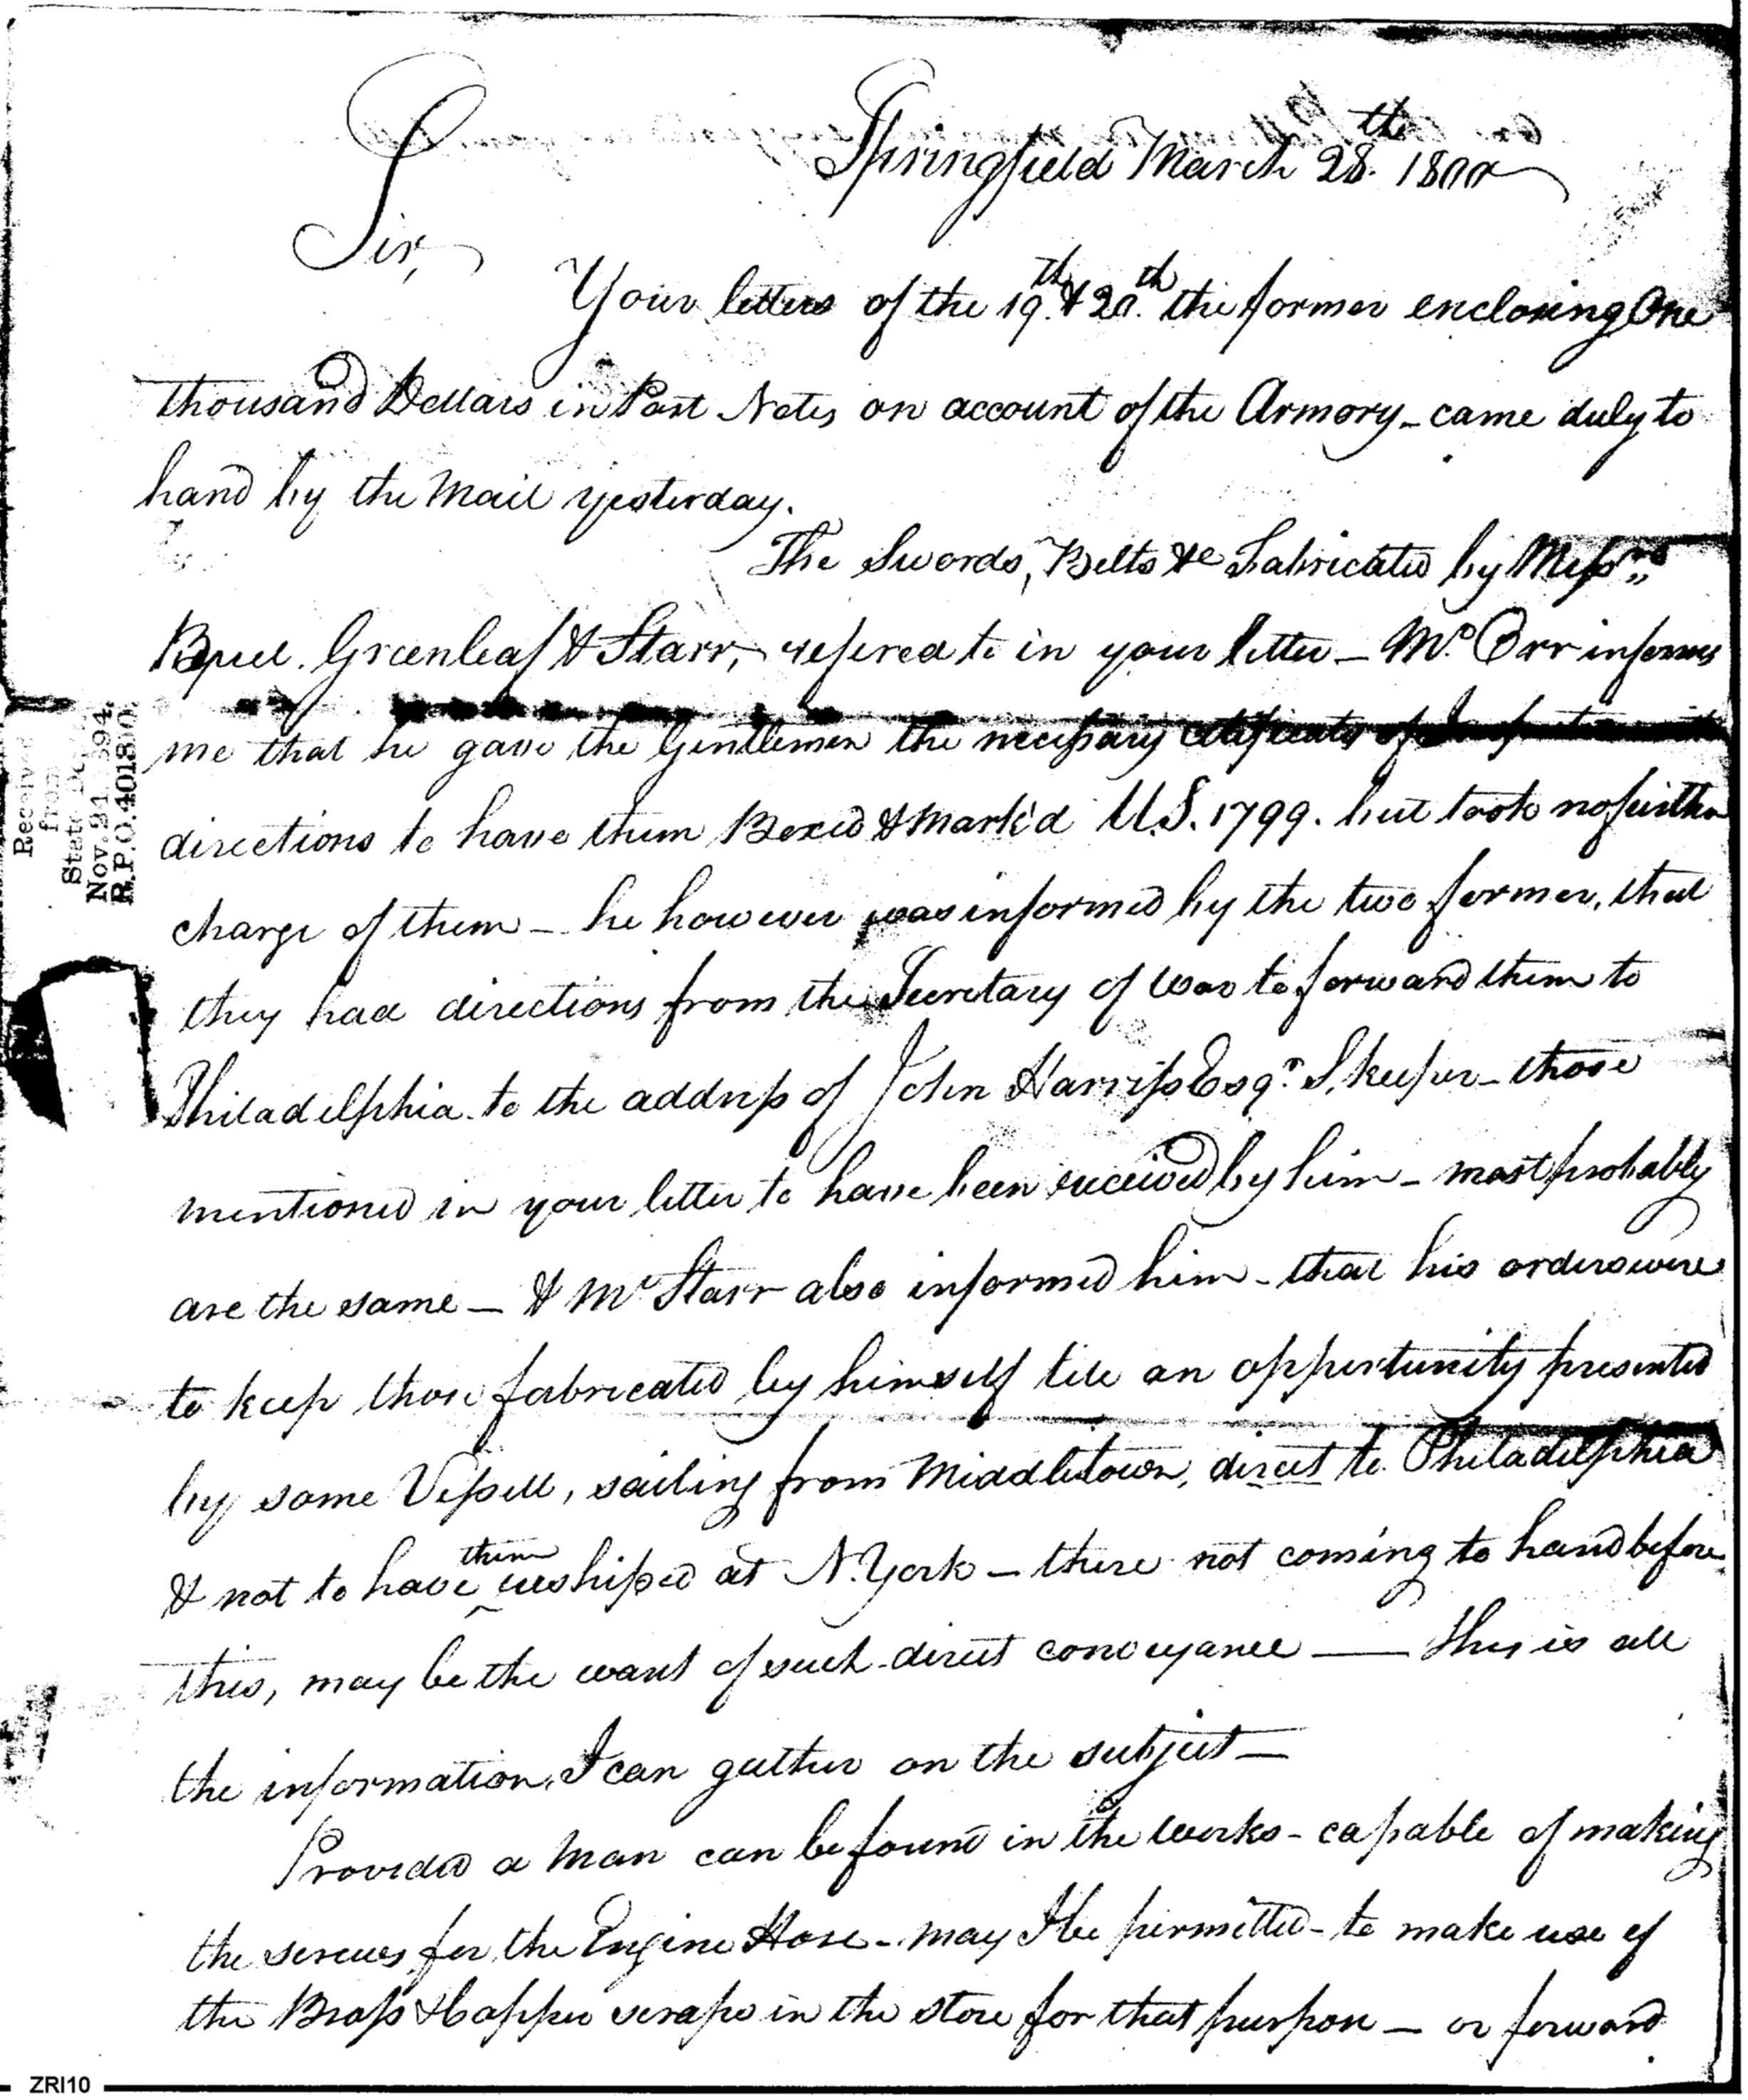 Springfield March 28.th 1800
Sir,
Your letters of the 19.th & 20.th the former enclosing One
thousand Dollars in Post Notes on account of the Armory – came duly to
hand by the Mail yesterday.
The Swords, Belts &c Fabricated by Messrs
Buell. Greenleaf & Starr, refered to in your letter – Mr. Orr informs
me that he gave the Gentlemen the necessary certificates of
directions to have them Boxed & Mark'd U.S. 1799. but took no further
charge of them – he however was informed by the two former, that
they had directions from the Secretary of War to forward them to
Philadelphia to the address of John Harriss Esqr. S, keeper – those
mentioned in your letter to have been received by him – most probably
are the same – & Mr Starr also informed him – that his orders were
to keep those fabricated by himself till an opportunity presented
by some Vessell, sailing from Middletown, direct to Philadelphia
& not to have them reshiped at N. York – there not coming to hand before
this, may be the want of such direct conveyance — this is all
the information, I can gather on the subject —
Provided a Man can be found in the Works – capable of making
the screws for the Engine Hose – may I be permitted – to make use of
the Brass & Copper scraps in the store for that purpose – or forward
Received
from
State De
Nov. 21, 1894.
R.P.O. 401800.
ZRI10